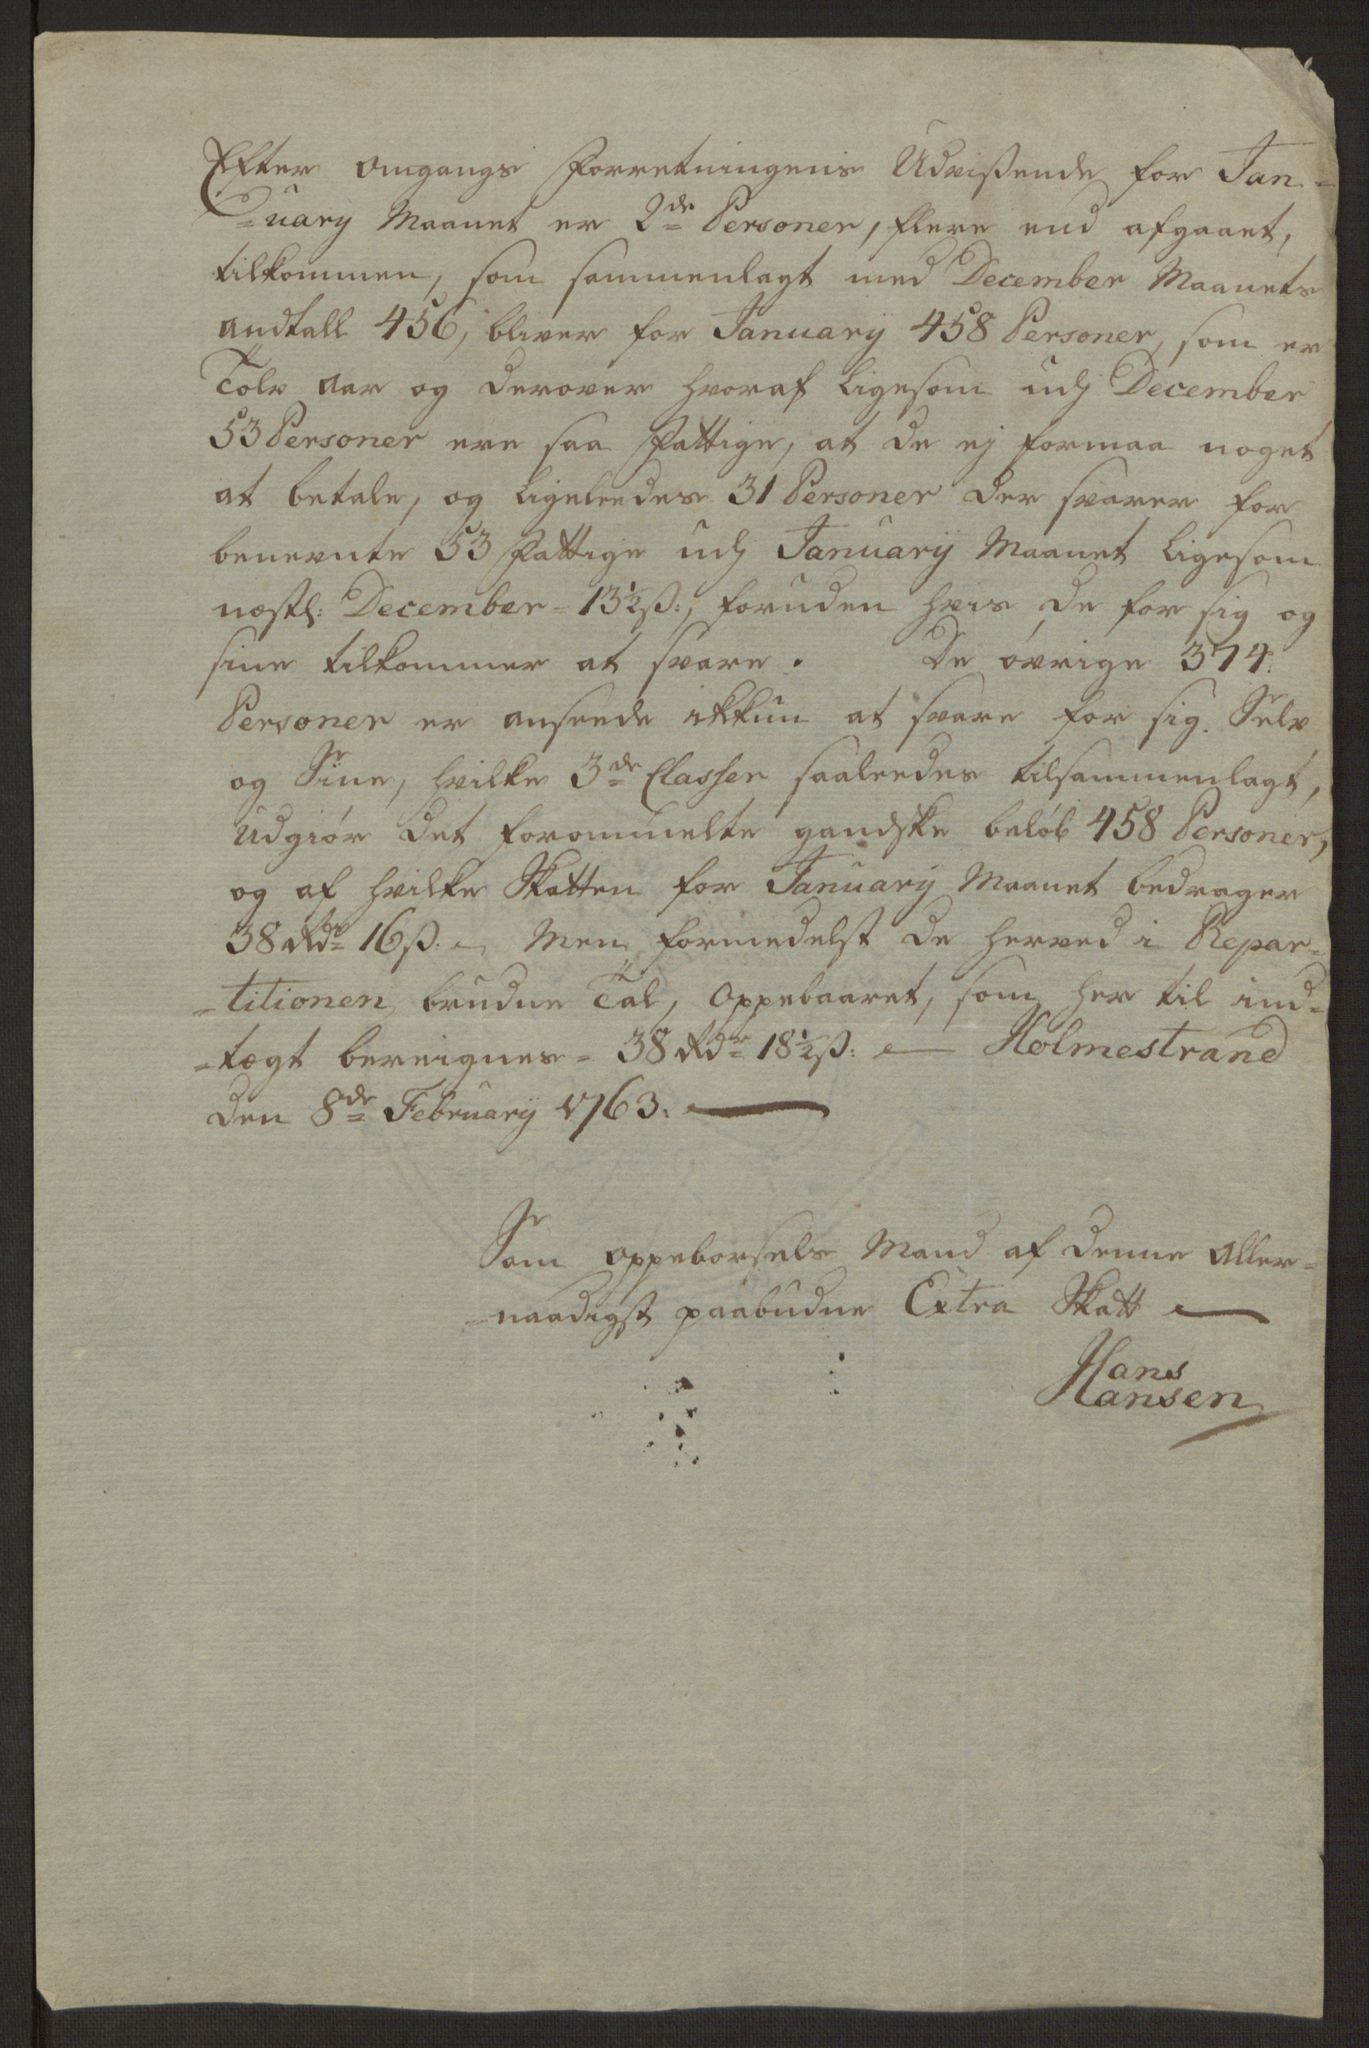 Efter omgangs Forretningens Udvißende for Jan-
-uary Maanet er 2de Personer, flere end afgaaet,
tilkommen, som sammenlagt med December Maanets
Andtall 456, bliver for January 458 Personer, som er
Tolv Aar og derover hvoraf ligesom udj December
53 Personer ere saa Fattige, at de ej formaa noget
at betale, og ligeleedes 31 Personer der svarer for
benevnte 53 Fattige udj January Maanet ligesom
næstl: December = 13½ ß:, foruden hvis de for sig og
sine tilkommer at svare. De øvrige 374.
Personer er anseede ikkun at svare for sig Selv
og Sine, hvilke 3de Classer saaleedes tilsammenlagt,
udgiør det forommelte gandske beløb 458 Personer,
og af hvilke Skatten for January Maanet bedrager
38 Rdr 16 ß. Men formedelst de herved i Repar-
-titionen brudne Tal, Oppebaaret, som her til ind-
-tægt bereignes = 38 Rdr 18½ ß: Holmestrand
den 8de February 1763.
Som oppeborsels Mand af denne Aller-
-naadigst paabudne Extra Skatt
Hans
Hansen